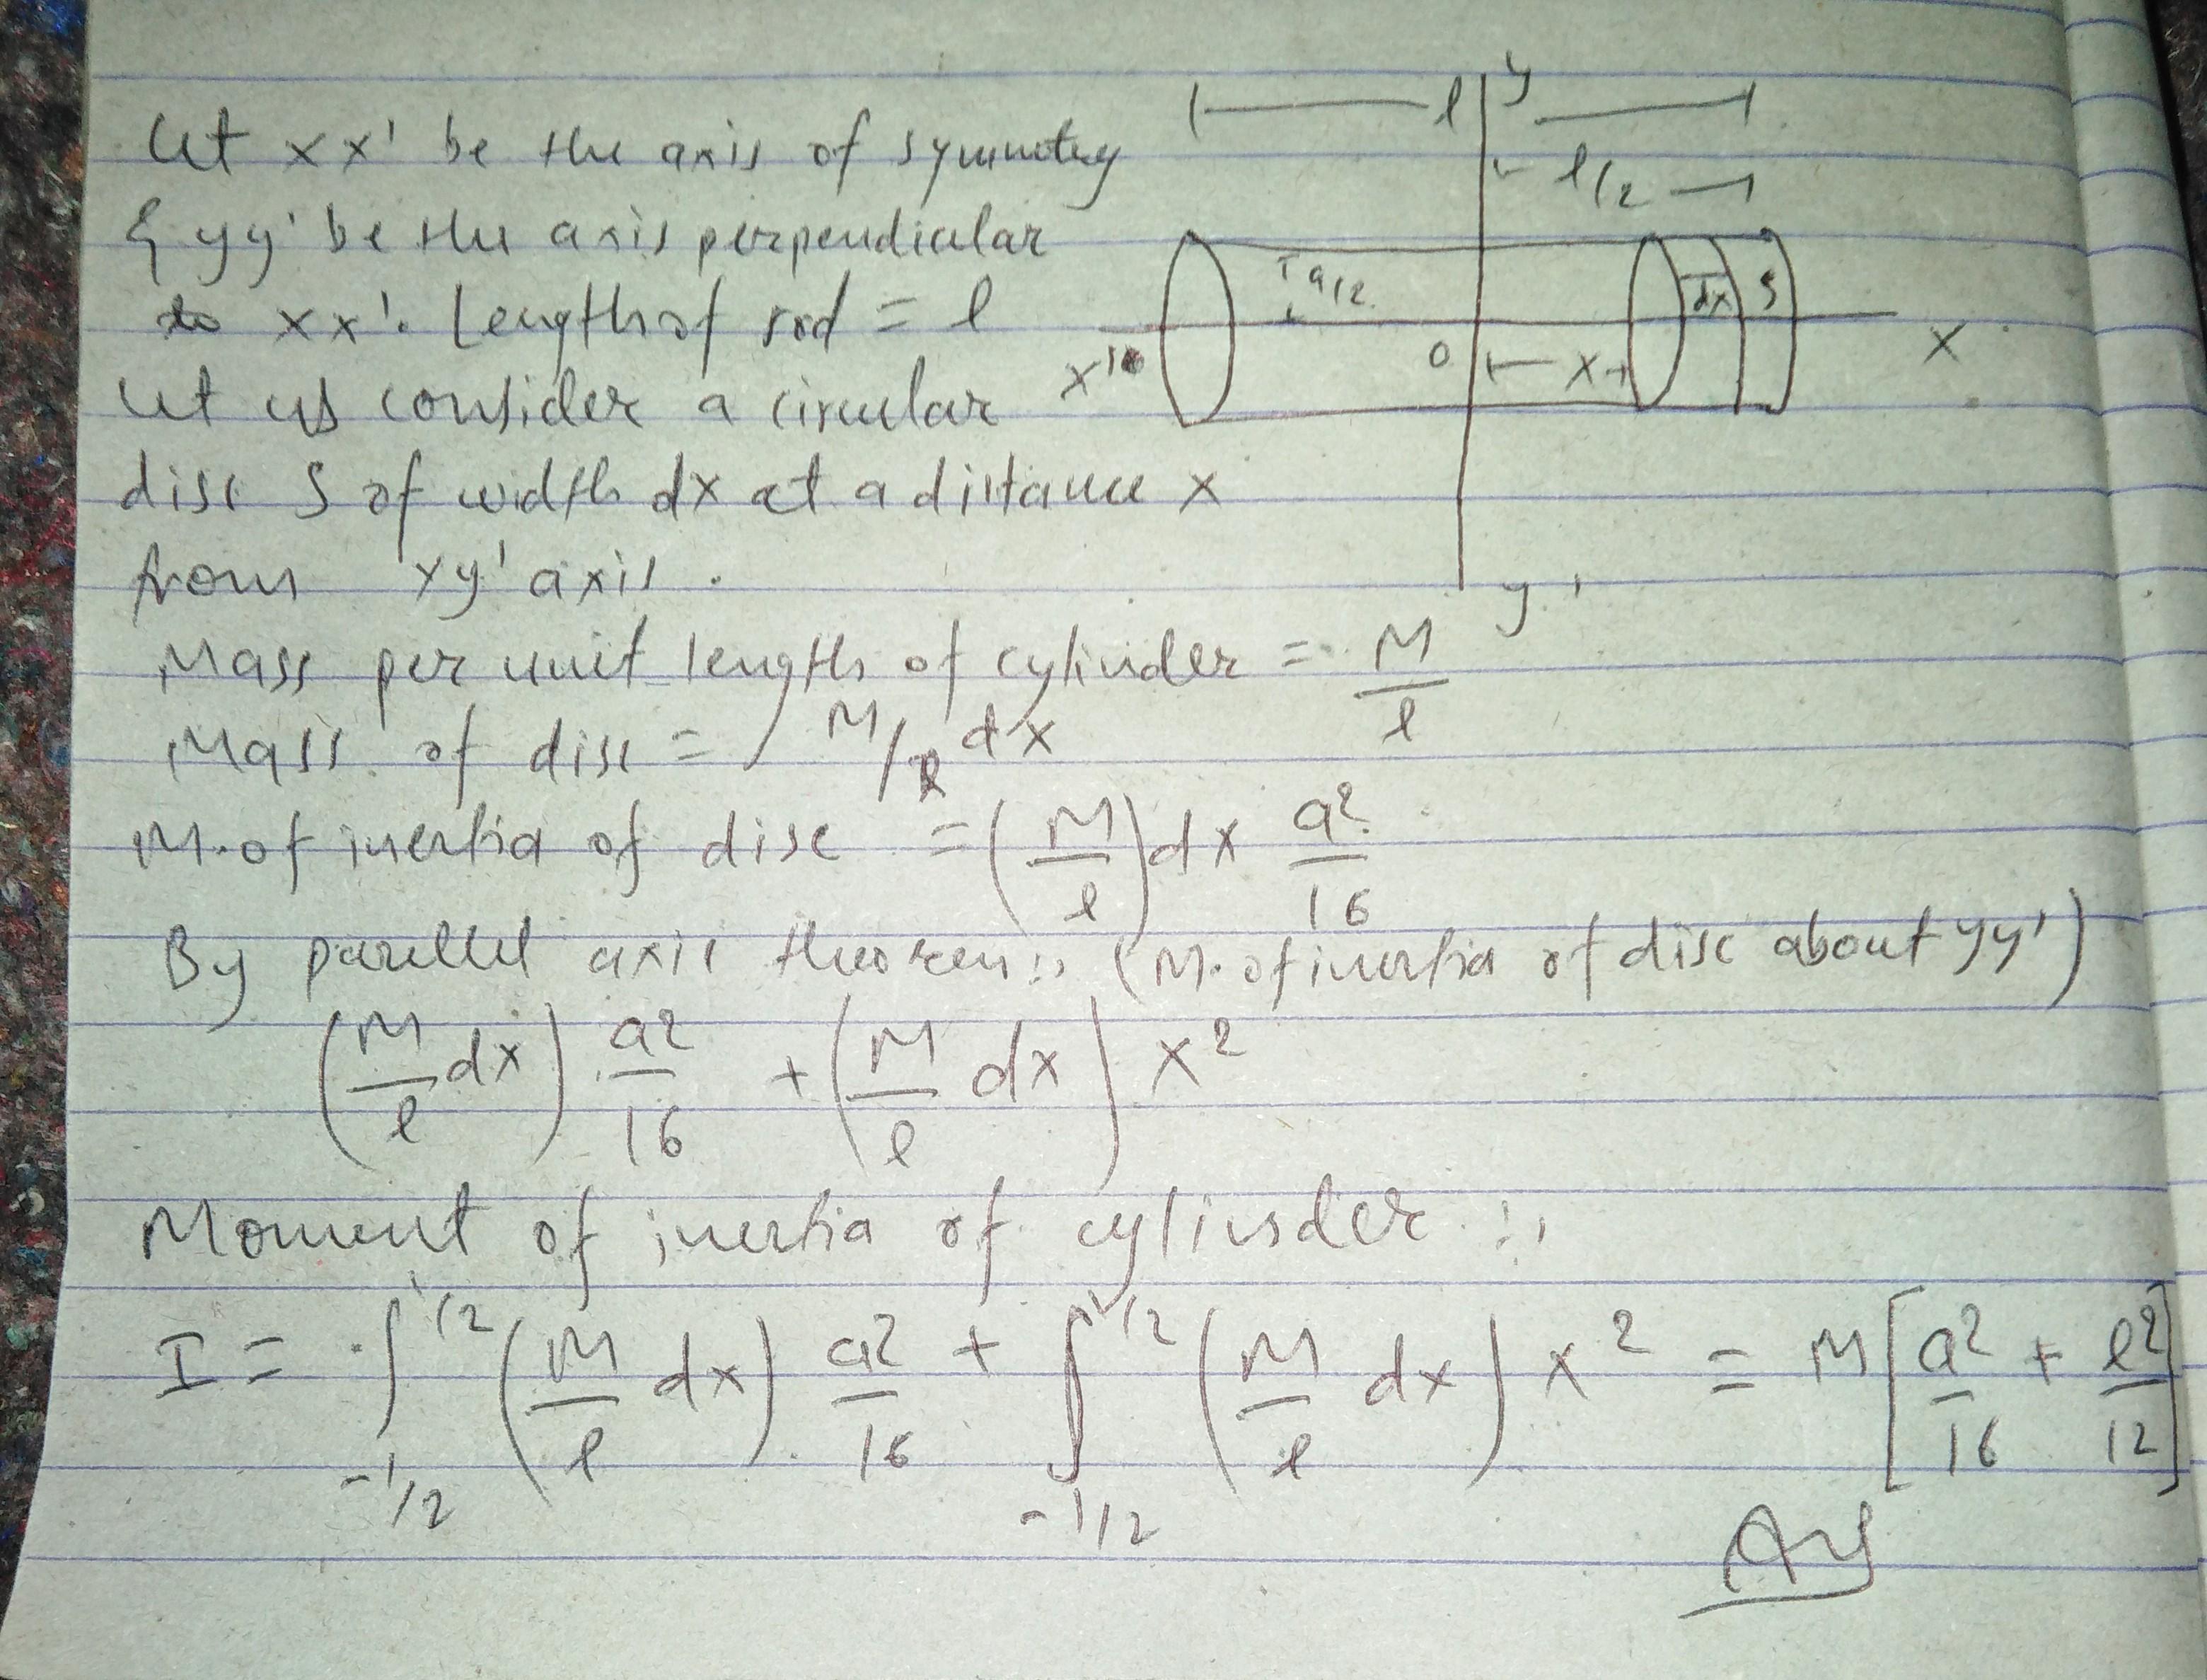 Let xx' be the axis of symmetry
& yy' be the axis perpendicular
to xx'. Length of rod = l
Let us consider a circular
disc S of width dx at a distance x
from yy' axis.
l
y
l/2
a/2
dx
S
x'
O
x
X
y'
Mass per unit length of cylinder = M/l
Mass of disc = M/l dx
M. of inertia of disc = (M/l) dx a²/16
By parellel axis theorem :: (M. of inertia of disc about yy')
(M/l dx) a²/16 + (M/l dx) x²
Moment of inertia of cylinder ::
I = ∫_{-l/2}^{l/2} (M/l dx) . a²/16 + ∫_{-l/2}^{l/2} (M/l dx) x² = M[a²/16 + l²/12]
Ans